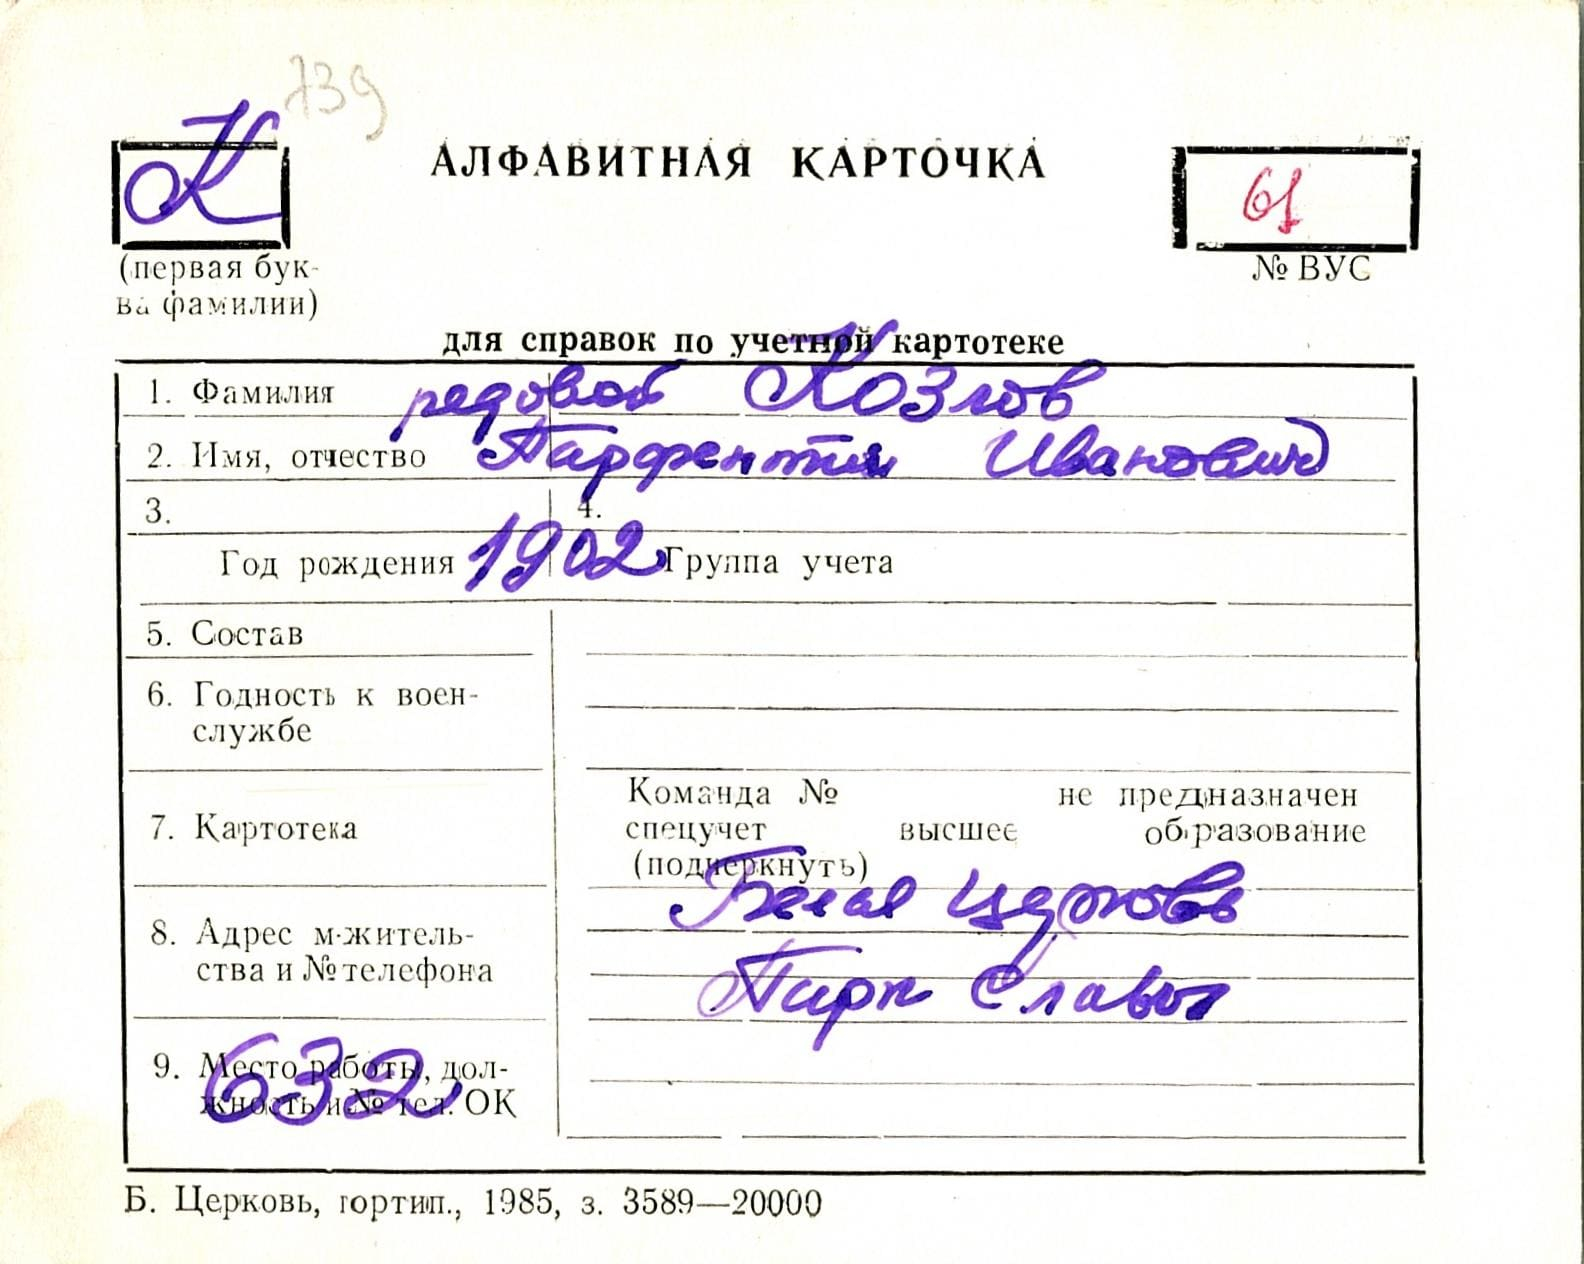 739
К
АЛФАВИТНАЯ КАРТОЧКА
61
(первая бук-
ва фамилии)
№ ВУС
для справок по учетной картотеке
1. Фамилия рядовой Козлов
2. Имя, отчество Парфентий Иванович
3. 4.
Год рождения 1902 Группа учета
5. Состав
6. Годность к воен-
службе
Команда № не предназначен
7. Картотека спецучет высшее образование
(подчеркнуть)
Белая Церковь
8. Адрес м-житель-
ства и № телефона
Парк Славы
9. Место работы, дол-
жность и № тел. ОК
632
Б. Церковь, гортип., 1985, з. 3589—20000